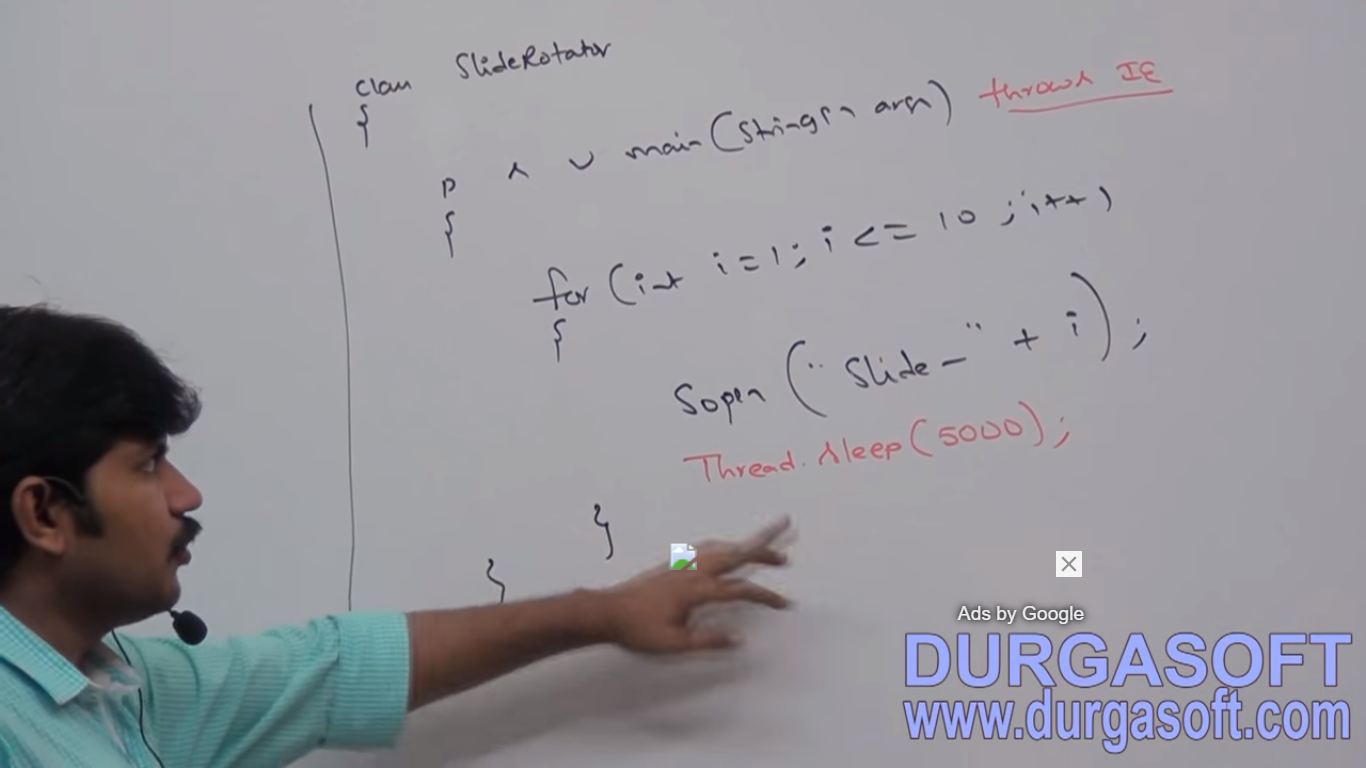 class SlideRotator
{
p s v main(String[] args) throws IE
{
for (int i=1; i <= 10 ; i++)
{
Sopln ("Slide-" + i);
Thread.sleep(5000);
}
}
Ads by Google
DURGASOFT
www.durgasoft.com